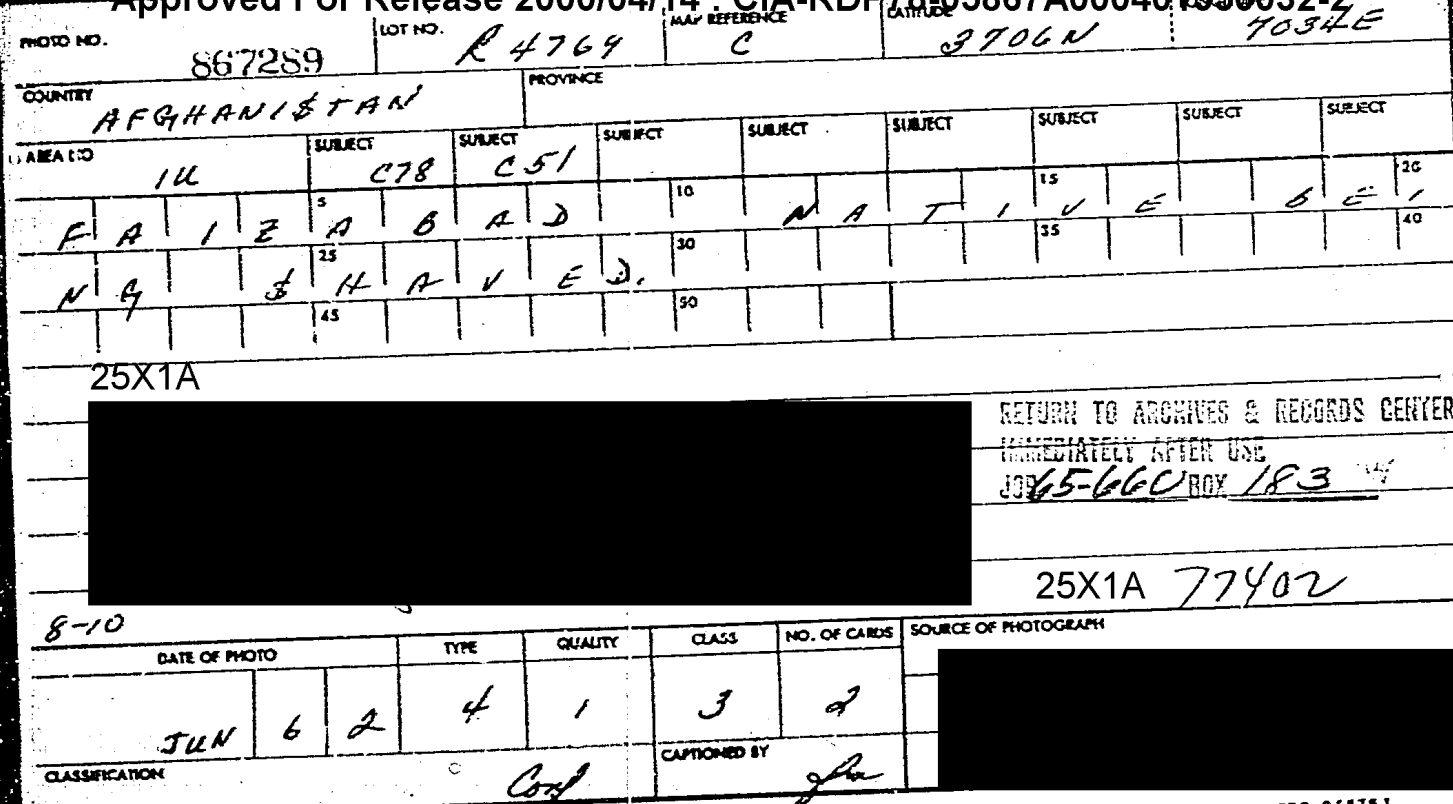 Approved For Release 2000/04/14 : CIA-RDP78-03867A000401
PHOTO NO. 867289 LOT NO. R 4769 MAP REFERENCE C LATITUDE 3706N 7034E
COUNTRY AFGHANISTAN PROVINCE
AREA NO 1U SUBJECT C78 SUBJECT C51 SUBJECT SUBJECT SUBJECT SUBJECT SUBJECT SUBJECT
5 10 15 20
FAIZABAD NATIVE BEI
25 30 35 40
NG SHAVED.
45 50
25X1A
RETURN TO ARCHIVES & RECORDS CENTER
IMMEDIATELY AFTER USE
JOB 65-66C BOX 183
25X1A 77402
8-10
DATE OF PHOTO TYPE QUALITY CLASS NO. OF CARDS SOURCE OF PHOTOGRAPH
JUN 6 2 4 1 3 2
CLASSIFICATION Conf CAPTIONED BY